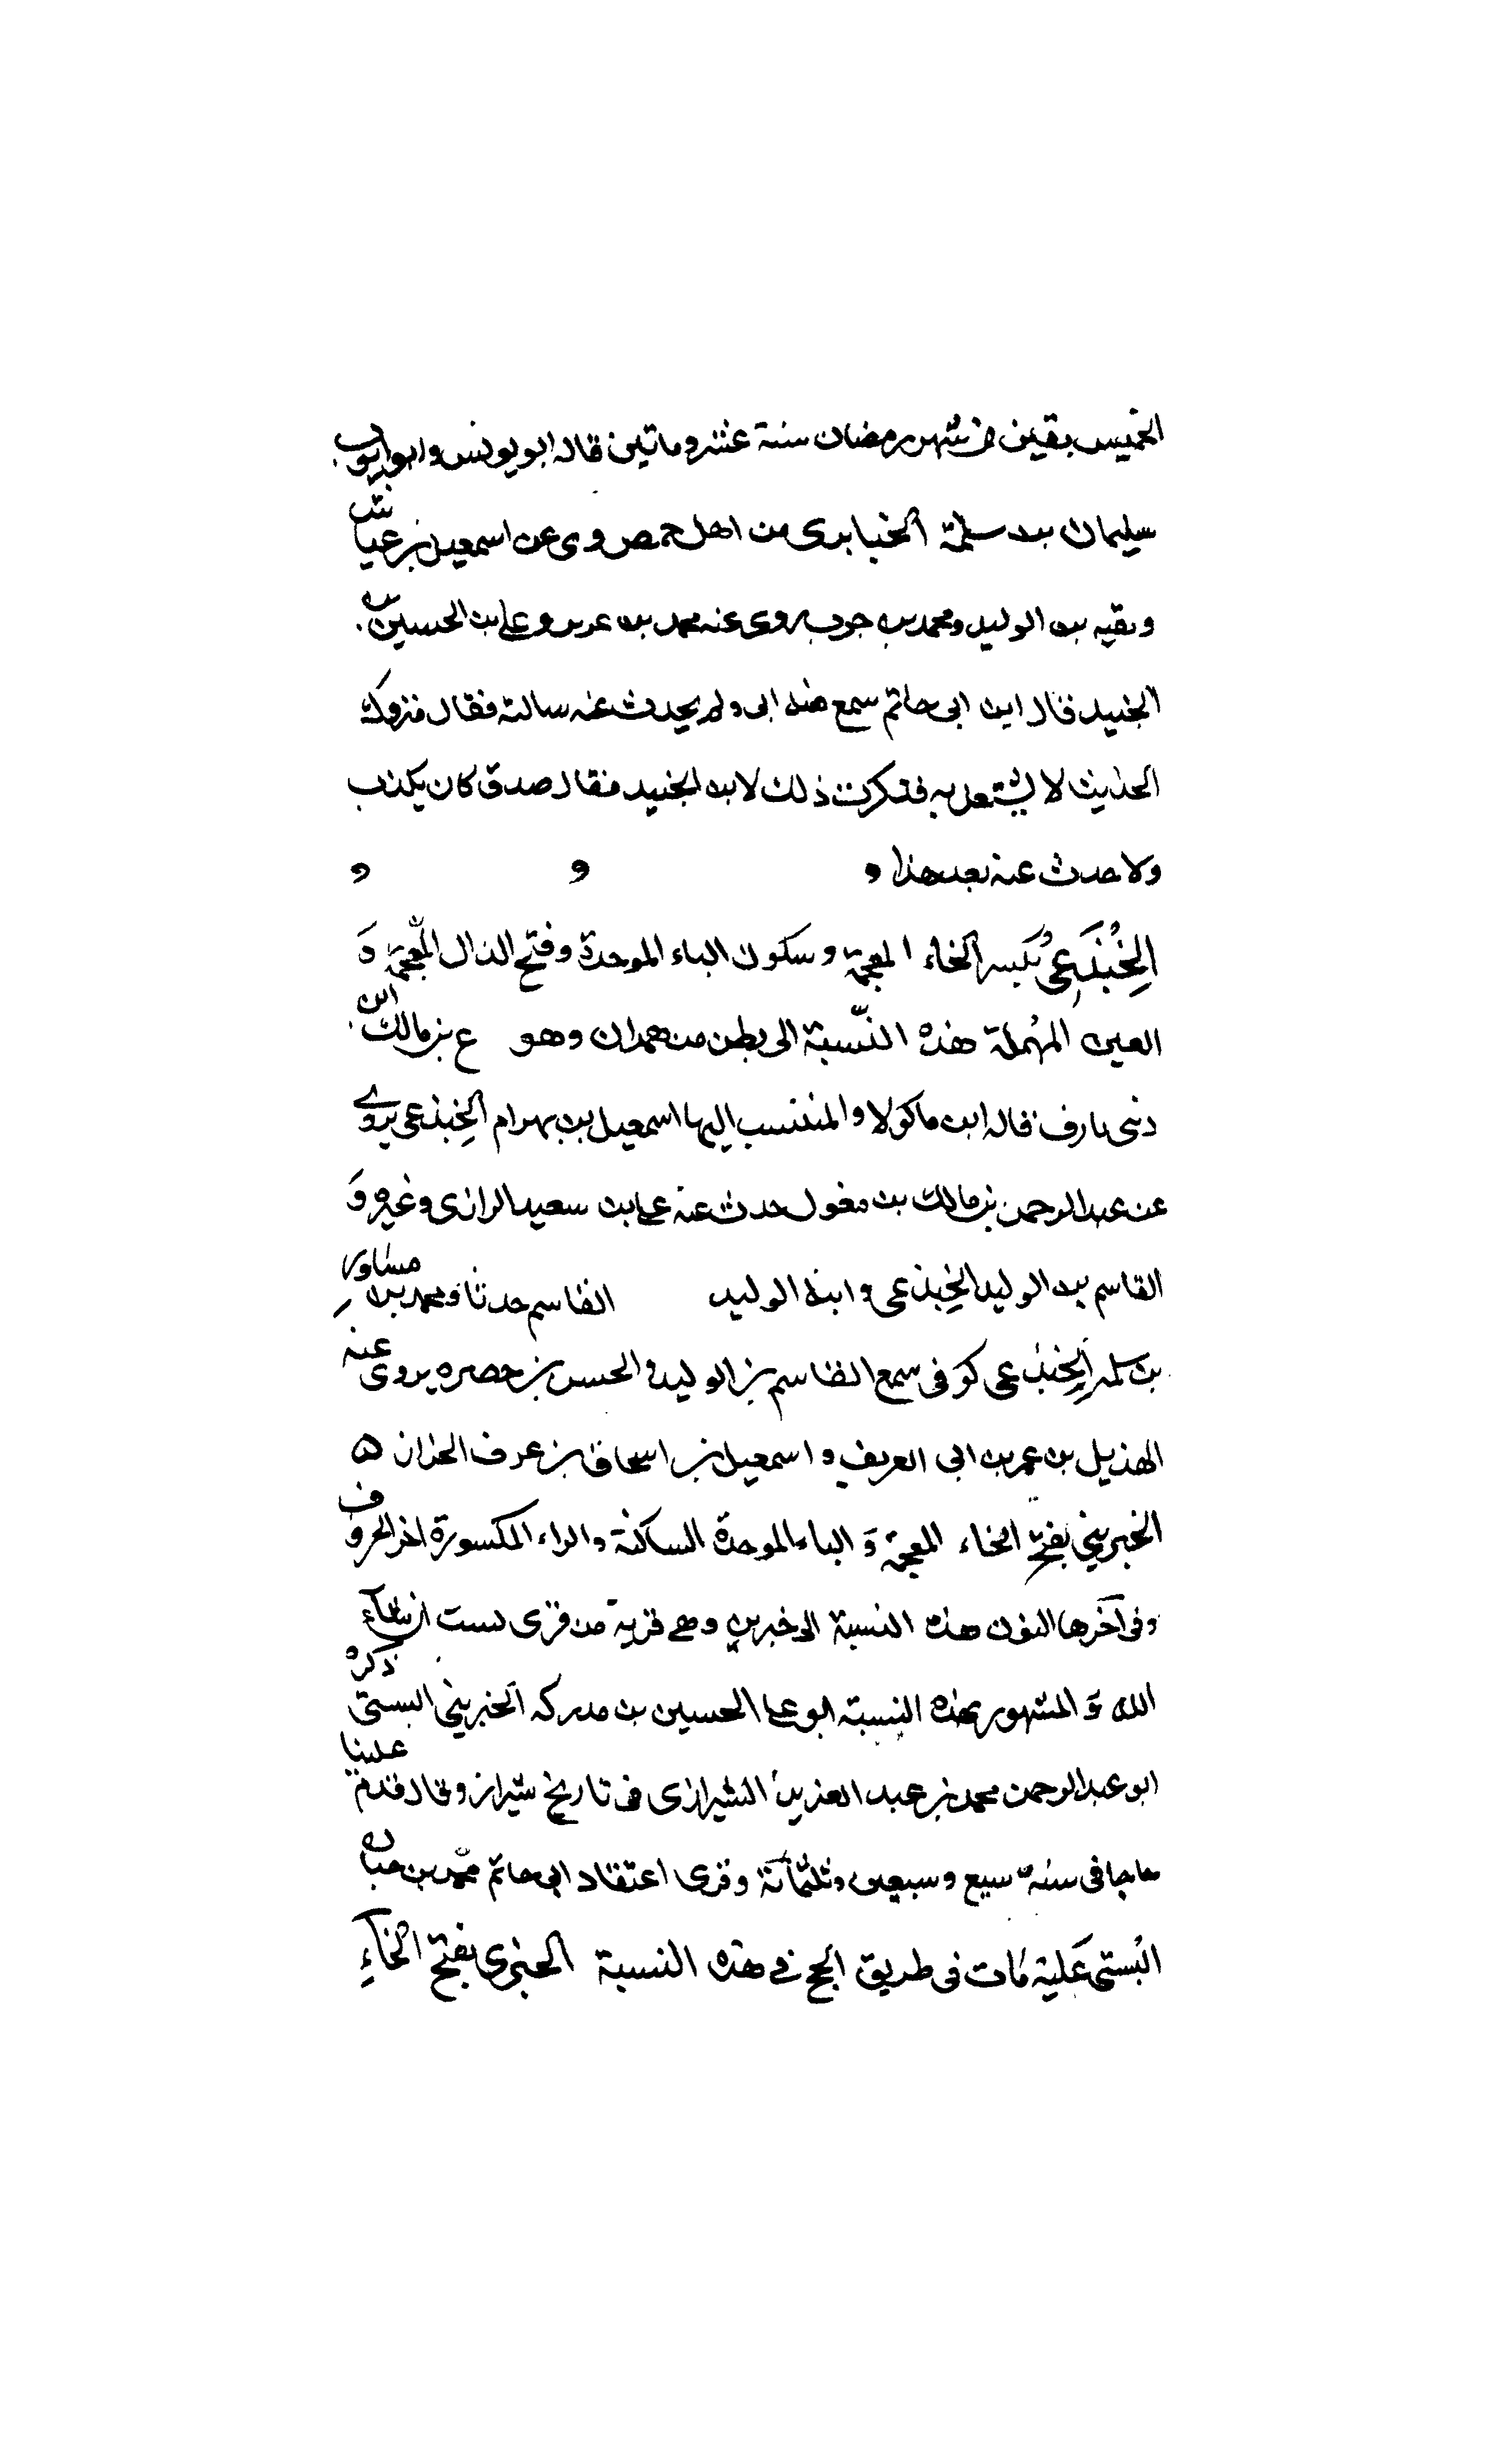 الخميس بقين من شهر رمضان سنة عشر وماتين قاله ابو يونس وابو ايوب
سليمان بن سلمة الخبايرى من اهل حمص روى عن اسمعيل بن عياش
وبقيه بن الوليد ومحمد بن حرب روى عنه محمد بن عزيز وعلى بن الحسين بن
الجنيد قال ابن ابى حاتم سمع منه ابى ولم يحدث عنه سالته فقال متروك
الحديث لا يشتغل به فذكرت ذلك لابن الجنيد فقال صدق كان يكذب
ولا حدث عنه بعد هذا
الخِبْذَعى بكسر الخاء المعجمة وسكون الباء الموحدة وفتح الذال المعجمة وَ
العين المهملة هذه النّسبة الى بطن من همدان وهو ع بن مالك ابن
ذى بارق قاله ابن ماكولا والمنتسب اليها اسمعيل بن بهرام الخِبذعى يروى
عن عبد الرحمن بن مالك بن مغول حدث عنه على بن سعيد الرازى وغيره وَ
القاسم بن الوليد الخِبذعى وابنه الوليد القاسم حدثنا ومحمد بن مساور
بن سلمه الخِبذعى كوفى سمع القاسم بن الوليد والحسن بن حصره يروى عنه
الهذيل بن عمر بن ابى العريف واسمعيل بن اسحاق بن عرف الحزان ٥
الخبرينى بفتح الخاء المعجمة وَ الباء الموحدة الساكنة والراء المكسورة اخر الحروف
وفى آخرها النون هذه النسبة الى خبرين وهى قرية من قرى بست ان شاء
الله وَ المشهور بهذه النسبة ابو على الحسين بن مدركه الخبرينى البستى ذكره
ابو عبد الرحمن محمد بن عبد العزيز الشيرازى فى تاريخ شيراز وقال قدم علينا
حاجا فى سنة سبع وسبعين وثلثمائة وقرى اعتقاد ابى حاتم محمد بن حبان
البُستى عَلية مات فى طريق الحج فى هذه النسبة الخبزى بفتح الخاءِ